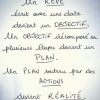 Un RÊVE
écrit avec une date
devient un OBJECTIF.
Un OBJECTIF décomposé en
plusieurs étapes devient un
PLAN.
Un PLAN soutenu par des
ACTIONS
devient RÉALITÉ.